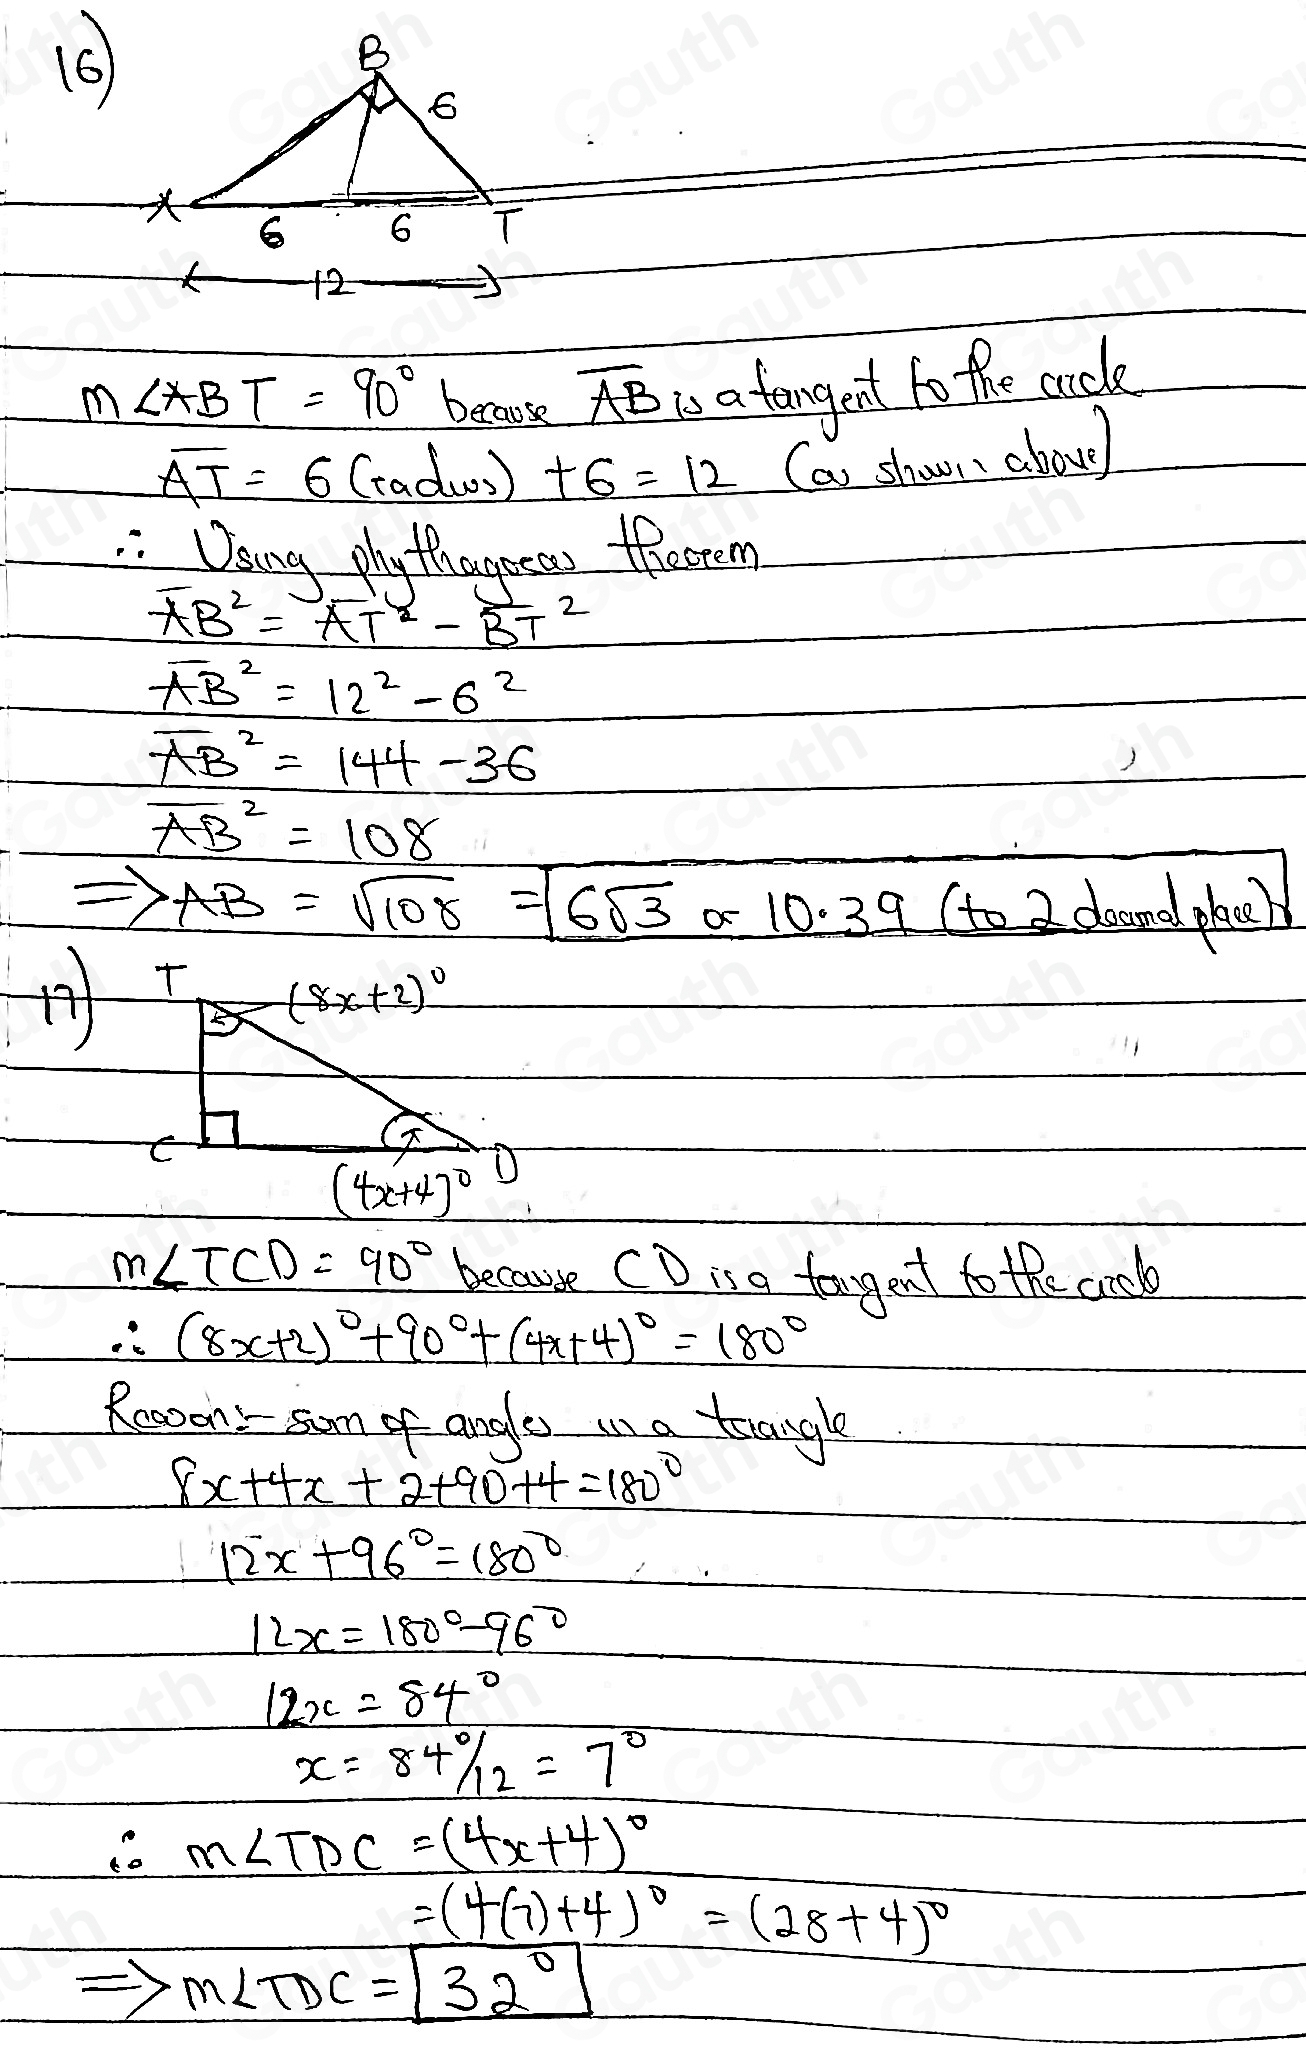 16)
B
6
A
6
6
T
12
m∠ABT = 90° because AB is a tangent to the circle
AT = 6 (radius) + 6 = 12 (as shown above)
∴ Using phythagoras theorem
AB² = AT² - BT²
AB² = 12² - 6²
AB² = 144 - 36
AB² = 108
⇒ AB = √108 = 6√3 or 10.39 (to 2 decimal place)
17)
T
(8x+2)°
C
D
(4x+4)°
m∠TCD = 90° because CD is a tangent to the circle
∴ (8x+2)° + 90° + (4x+4)° = 180°
Reason:- sum of angles in a triangle
8x+4x + 2+90+4 = 180°
12x + 96° = 180°
12x = 180° - 96°
12x = 84°
x = 84°/12 = 7°
∴ m∠TDC = (4x+4)°
= (4(7)+4)° = (28+4)°
⇒ m∠TDC = 32°
Gauth